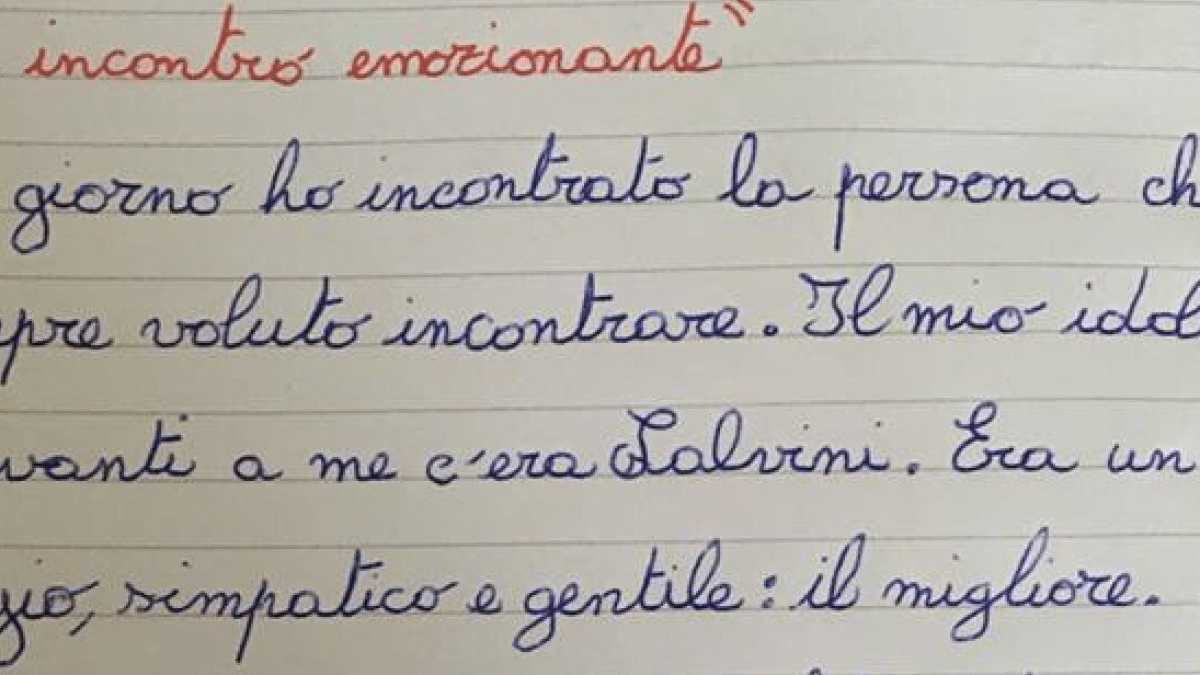 incontro emozionante"
giorno ho incontrato la persona ch
pre voluto incontrare. Il mio idol
vanti a me c'era Salvini. Era un
gio, simpatico e gentile: il migliore.